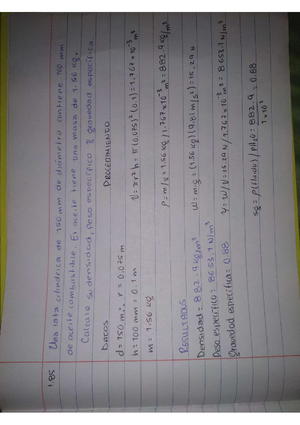 1.85 Una lata cilíndrica de 150 mm de diámetro contiene 100 mm
de aceite combustible. El aceite tiene una masa de 1.56 kg.
Calcule su densidad, peso específico & gravedad específica
DATOS
d = 150 m ∴ r = 0.075 m
h = 100 mm = 0.1 m
m = 1.56 kg
PROCEDIMIENTO
V = πr²h = π(0.075)²(0.1) = 1.767×10⁻³ m³
ρ = m/v = 1.56 kg / 1.767×10⁻³ m³ = 882.9 kg/m³
W = mg = (1.56 kg)(9.81 m/s²) = 15.29 N
γ = W/V = 15.29 N / 1.767×10⁻³ m³ = 8.653.1 N/m³
sg = ρ(fluido) / ρH₂O = 882.9 / 1×10³ = 0.88
RESULTADOS
Densidad = 882.9 kg/m³
Peso específico = 8653.1 N/m³
Gravedad específica: 0.88